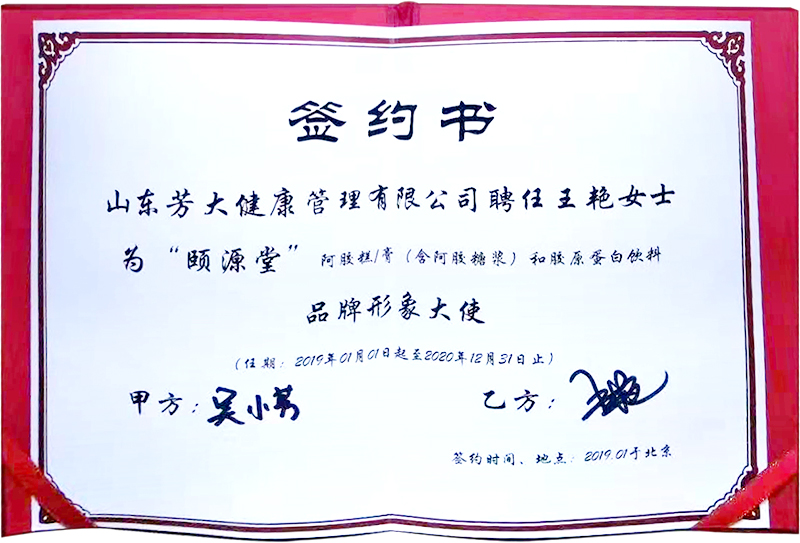 签约书
山东芳大健康管理有限公司聘任王艳女士
为“颐源堂” 阿胶糕/膏（含阿胶糖浆）和胶原蛋白饮料
品牌形象大使
（任期：2019年01月01日起至2020年12月31日止）
甲方：吴小芳 乙方：
签约时间、地点：2019.01于北京